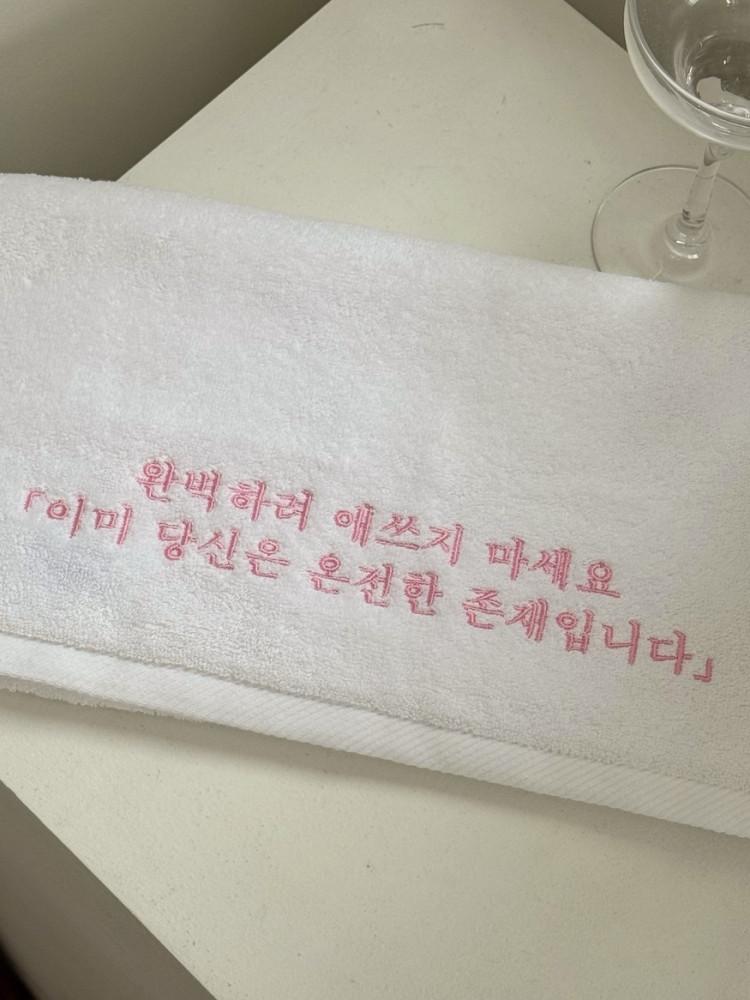 완벽하려 애쓰지 마세요
「이미 당신은 온전한 존재입니다」